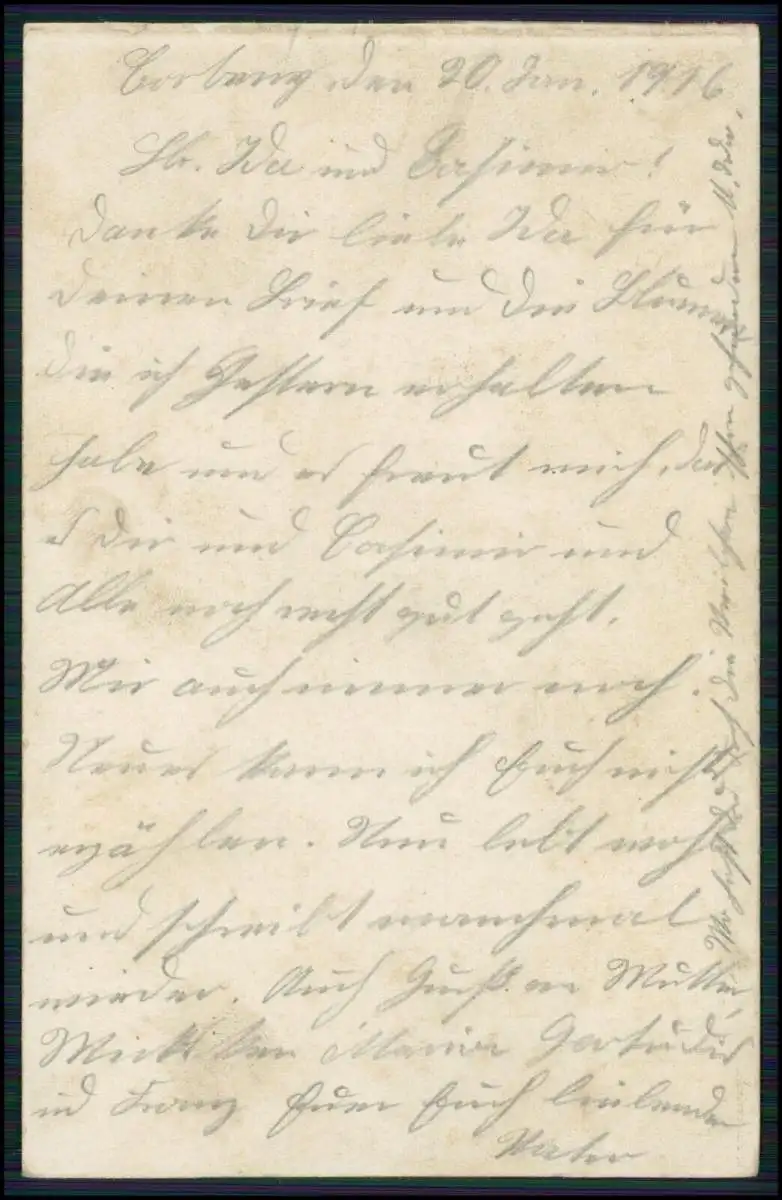 Corbeny den 20. Jan. 1916
Lb. Ida und Casimir!
Danke Dir liebe Ida für
Deinen Brief und die Blumen
die ich Gestern erhalten
habe und es freut mich, daß
es Dir und Casimir und
Alle noch recht gut geht.
Mir auch immer noch.
Neues kann ich Euch nicht
erzählen. Nun lebt wohl
und schreibt manchmal
wieder. Auch Gruß an Mutter,
Maria
und Franz Euer Euch liebender
Vater
Wo hast du die Veilchen gefunden